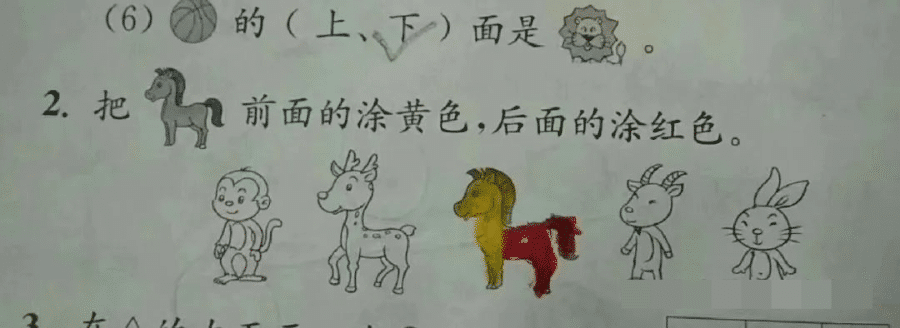 (6) 的(上、下)面是 。
2. 把 前面的涂黄色,后面的涂红色。
3.